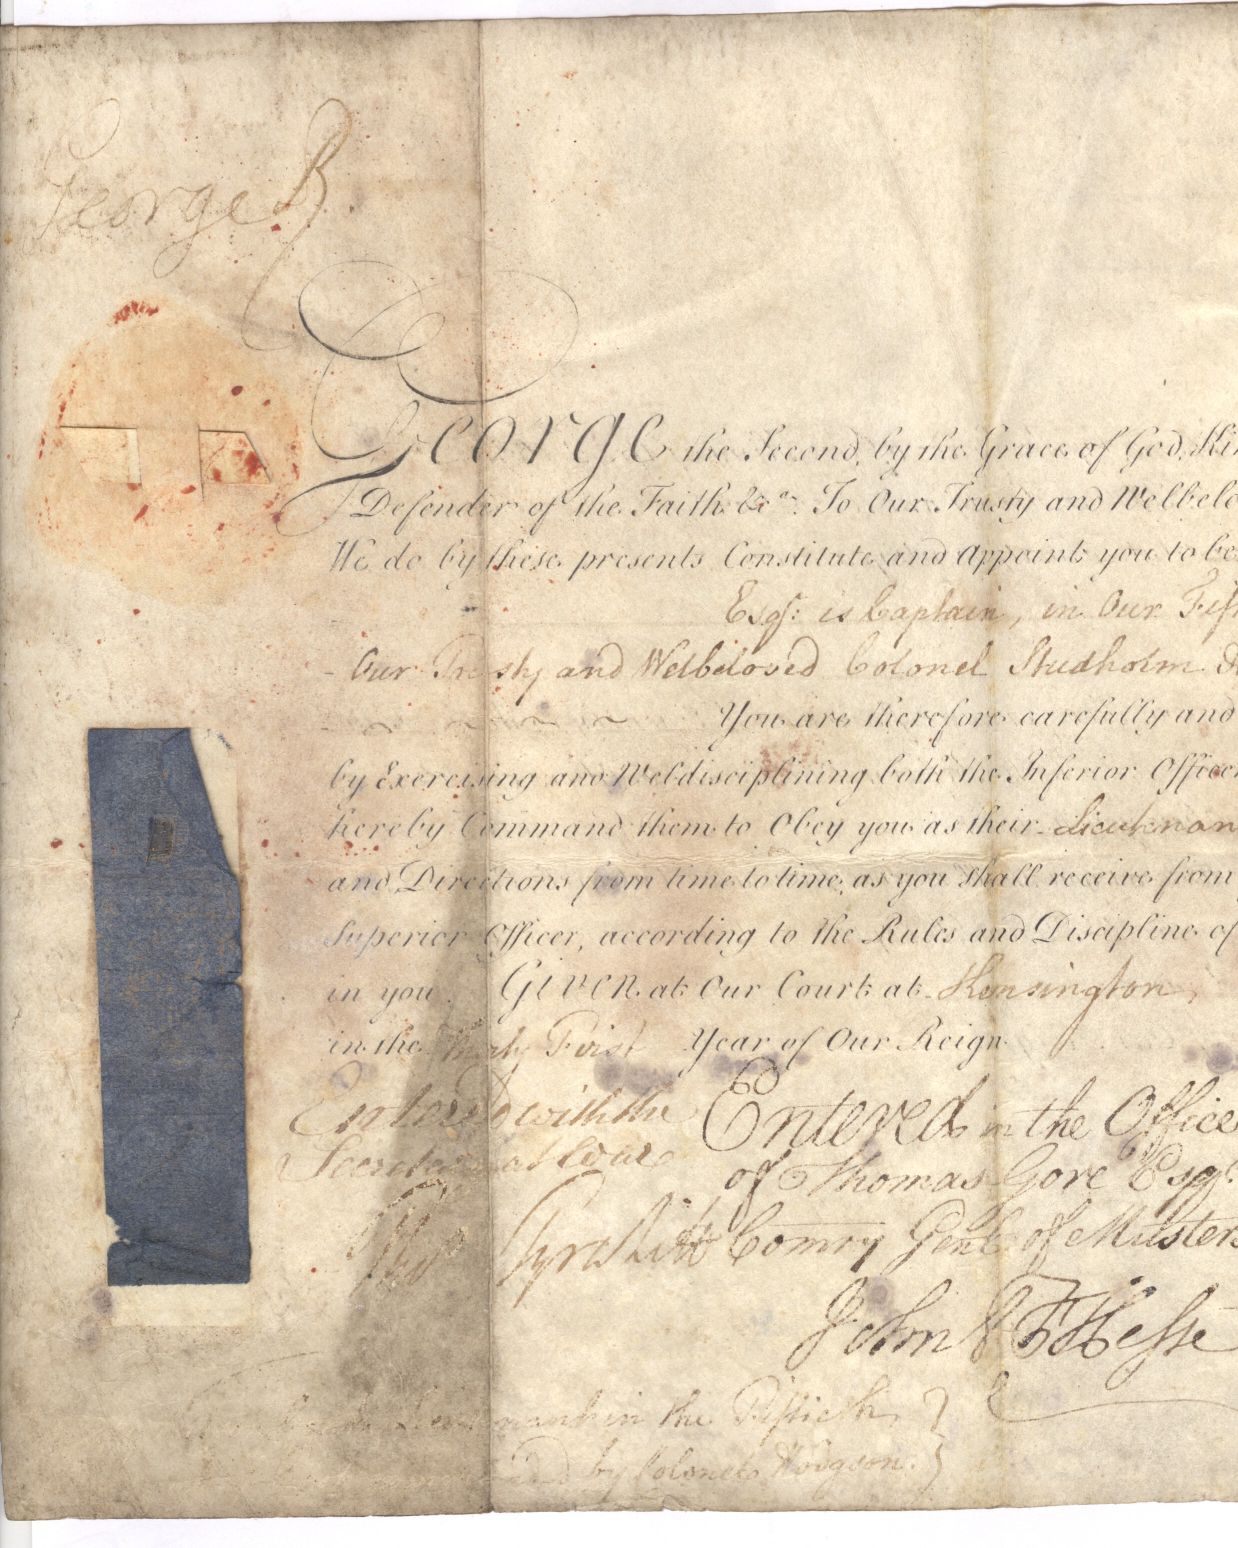 George R
George the Second, by the Grace of God, Kin
Defender of the Faith &c.ª To Our Trusty and Welbelo
We do by these presents Constitute and Appoint you to be
Esqr. is Captain, in Our Fift
Our Trusty and Welbeloved Colonel Studholm
You are therefore carefully and
by Exercising and Weldisciplining both the Inferior Officer
hereby Command them to Obey you as their Lieutenan
and Directions from time to time, as you shall receive from
Superior Officer, according to the Rules and Discipline of
in you. Given at Our Court at Kensington,
in the Thirty First Year of Our Reign
Entered with the
Secretary at War
Tho Tyrwhitt
Entered in the Office
of Thomas Gore Esqr.
Comry Genl. of Musters
John Hesse
Lieutenant in the Fiftieth
by Colonel Hodgson.